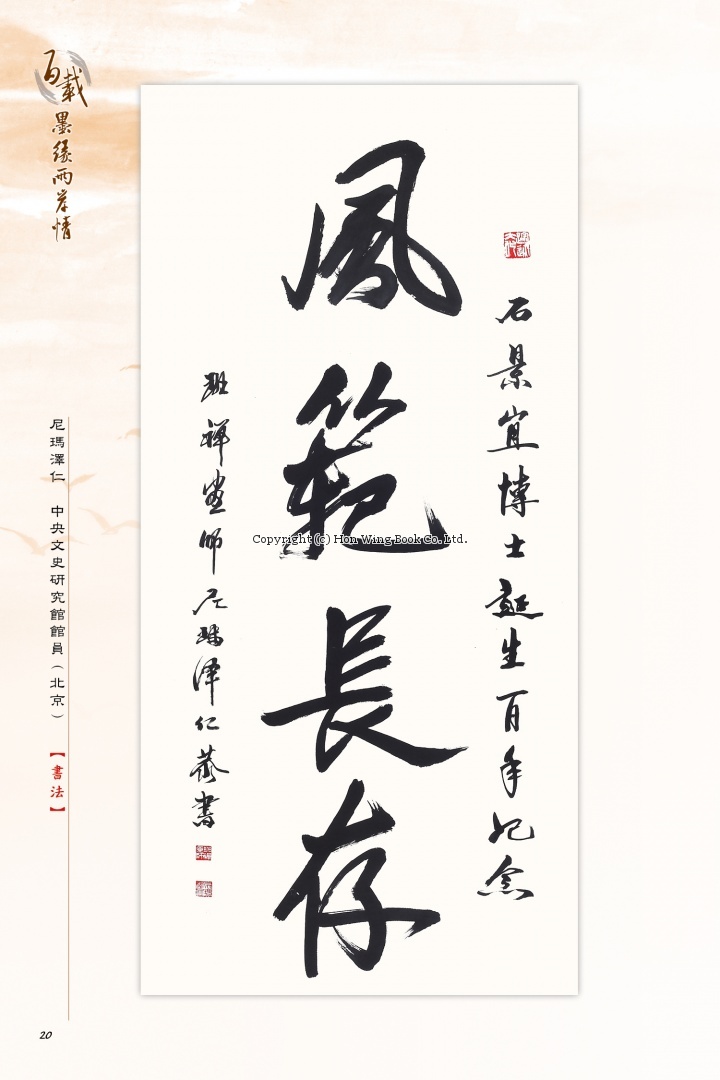 百載墨緣兩岸情
尼瑪澤仁　中央文史研究館館員（北京）【書法】
石景宜博士誕生百年紀念
風範長存
班禪畫師尼瑪澤仁敬書
Copyright (c) Hon Wing Book Co. Ltd.
20